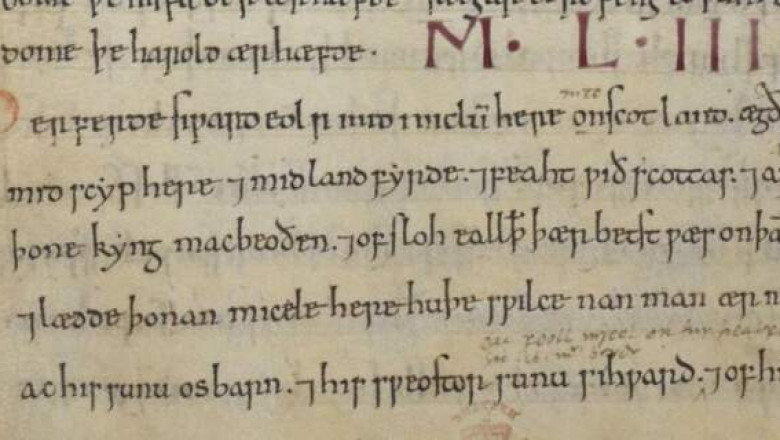 dome þe harold ær hæfde · M · L · III
er ferde siƿard eorl mid miclū here on scotland. ægð
mid scyp here ⁊ mid land fyrde. ⁊ feaht ƿið scottas. ⁊ a
þone kyng macbeoðen. ⁊ ofsloh eall ꝥ þær betst ƿæs on þa
⁊ lædde þonan micele here huþe sƿilce nan man ær n
ac his sunu osbarn. ⁊ his sƿeostor sunu sihƿard. ⁊ of hi